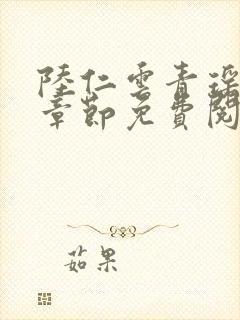 陸仁雲青瑤
章節免費閱
茹果